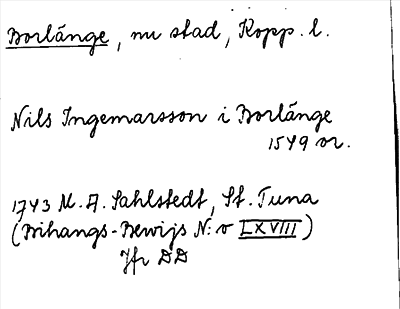 Borlänge, nu stad, Kopp. l.
Nils Ingemarsson i Borlänge
1549 or.
1743 M. A. Sahlstedt, St. Tuna
(Bihangs-Bewijs N:o LXVIII)
Jfr DD